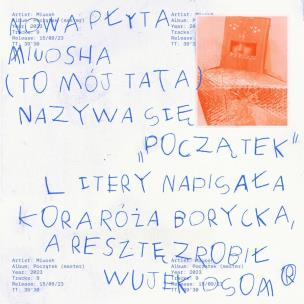 Artist: Miuosh
Album: Początek (master)
Year: 2023
Tracks: 9
Release: 15/09/23
TT: 30'30
Artist: Miuosh
Album: Początek (master)
Year: 2023
Tracks: 9
Release: 15/09/23
TT: 30'30
NOWA PŁYTA
MIUOSHA
(TO MÓJ TATA)
NAZYWA SIĘ
„POCZĄTEK"
LITERY NAPISAŁA
KORARÓŻA BORYCKA,
A RESZTĘ ZROBIŁ
WUJEK SOM®
Artist: Miuosh
Album: Początek (master)
Year: 2023
Tracks: 9
Release: 15/09/23
TT: 30'30
Artist: Miuosh
Album: Początek (master)
Year: 2023
Tracks: 9
Release: 15/09/23
TT: 30'30